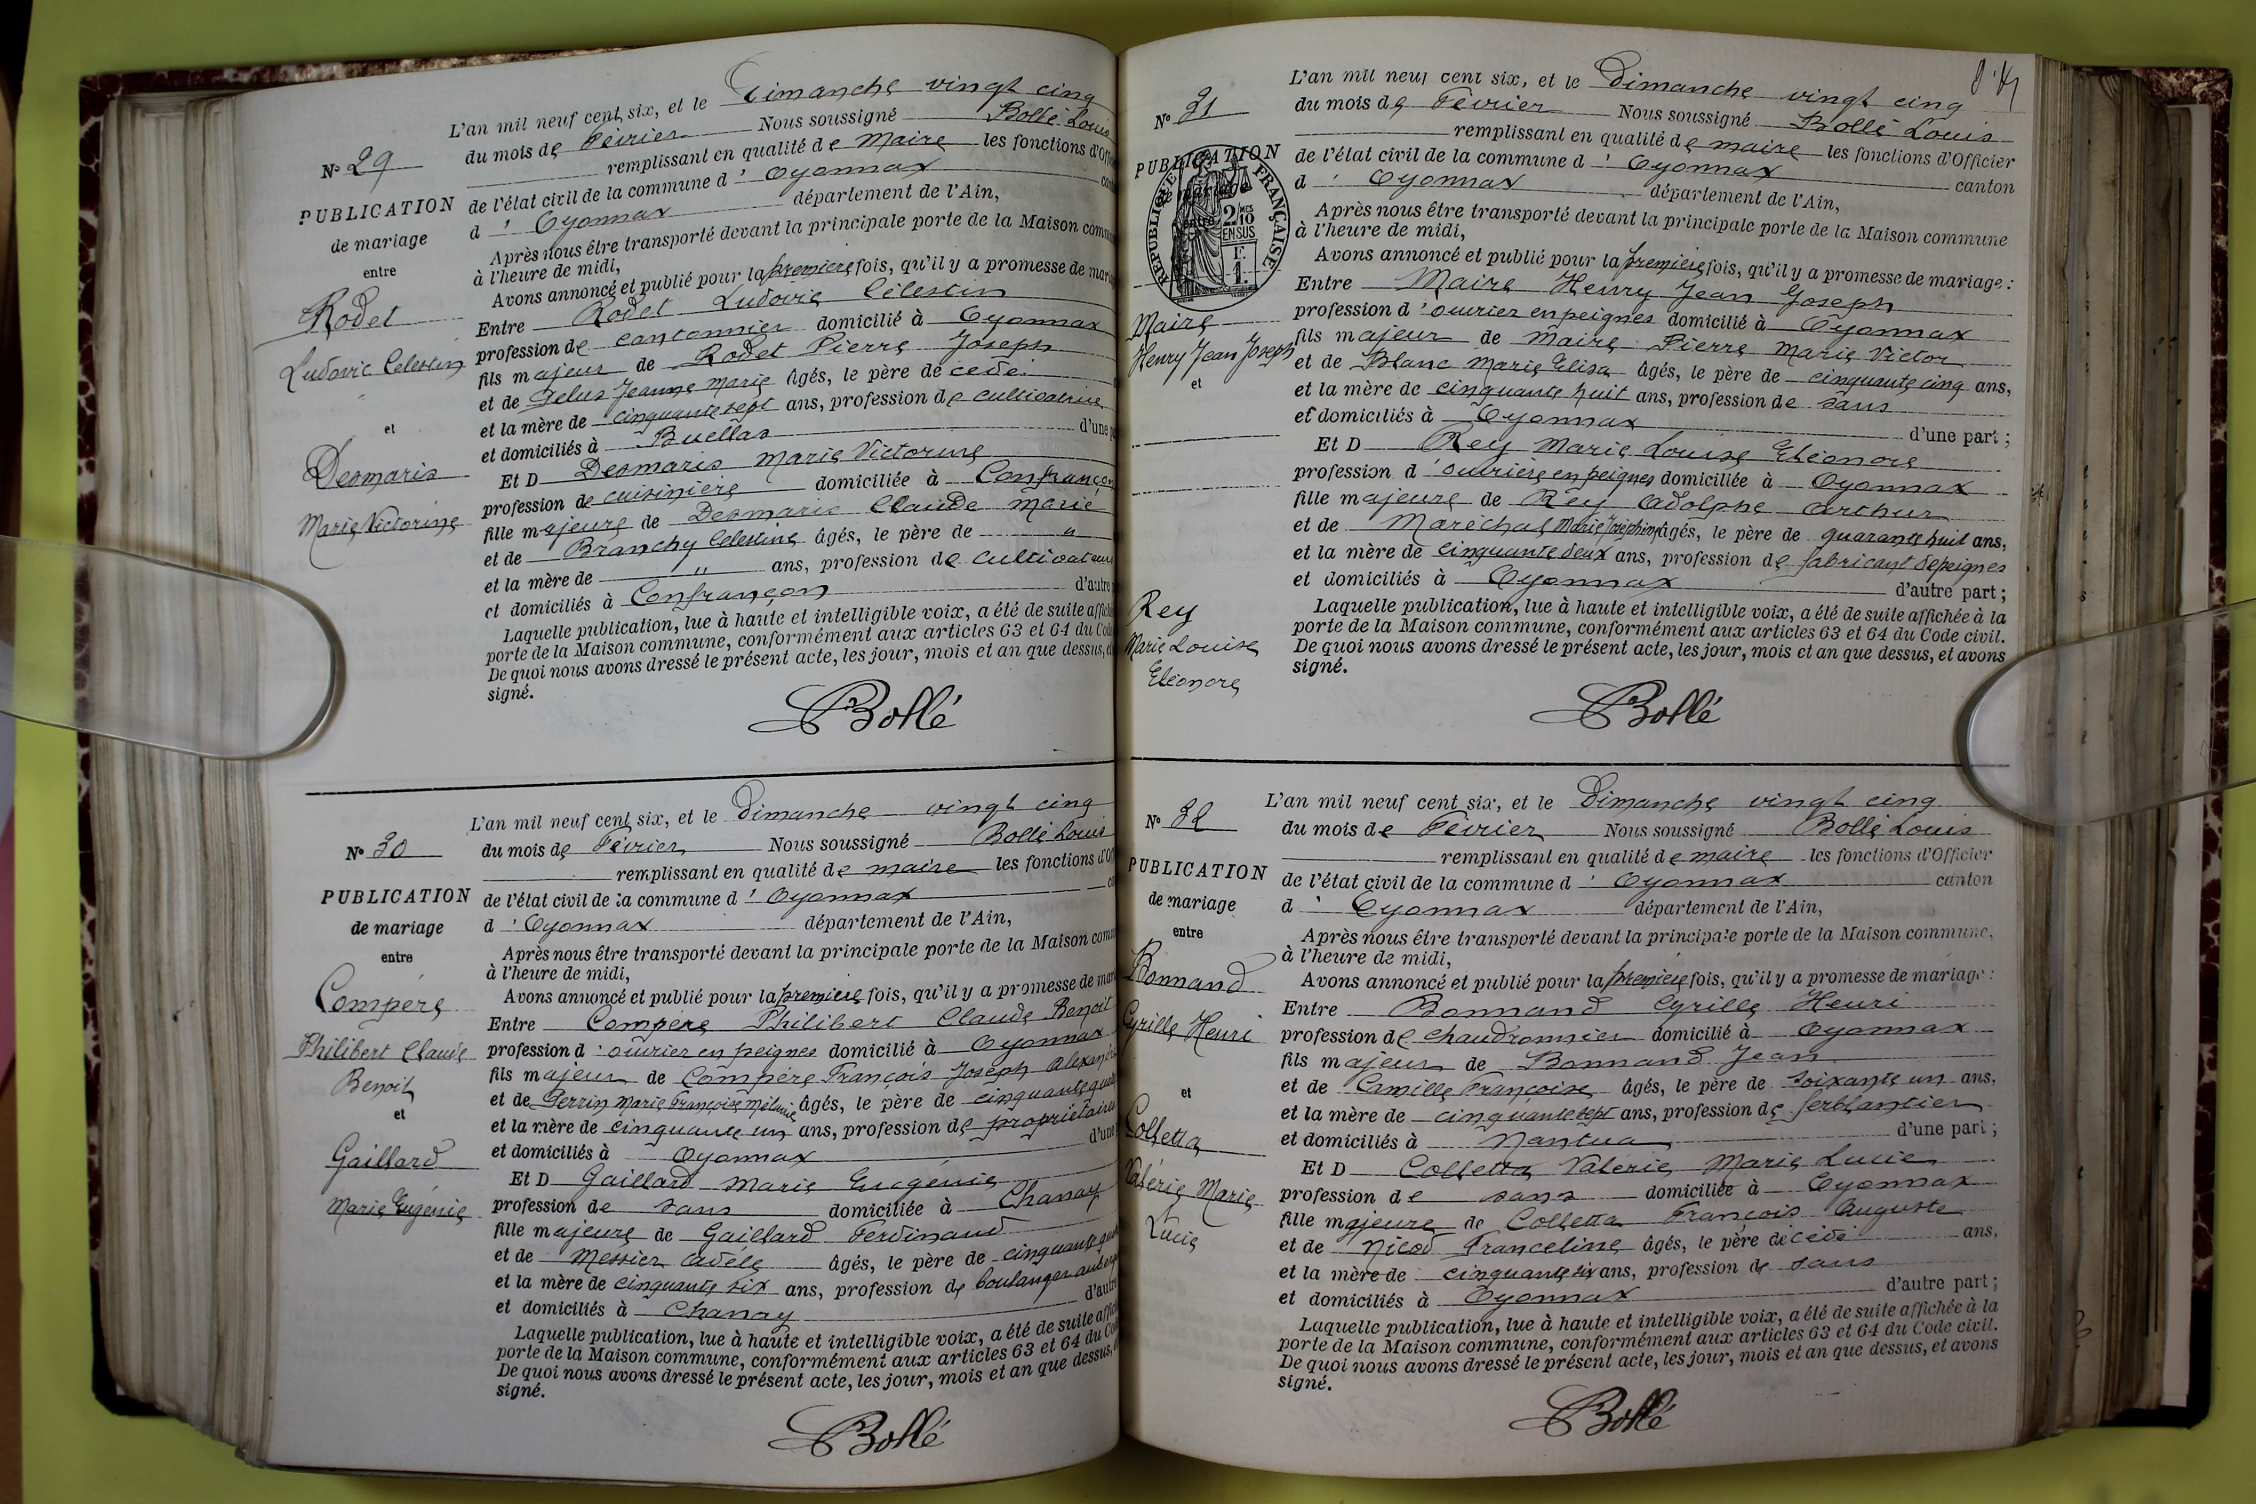 N° 29
PUBLICATION
de mariage
entre
Rodet
Ludovic Celestin
et
Desmaris
Marie Victorine
L'an mil neuf cent six, et le Dimanche vingt cinq
du mois de Février Nous soussigné Bollé Louis
remplissant en qualité de Maire les fonctions d'Offi
de l'état civil de la commune d' Oyonnax
d' Oyonnax département de l'Ain,
Après nous être transporté devant la principale porte de la Maison commu
à l'heure de midi,
Avons annoncé et publié pour la première fois, qu'il y a promesse de mari
Entre Rodet Ludovic Célestin
profession de cantonnier domicilié à Oyonnax
fils majeur de Rodet Pierre Joseph
et de Jeanne Marie âgés, le père de cédé
et la mère de cinquante sept ans, profession de cultivatrice
et domiciliés à Buellas d'une p
Et D Desmaris Marie Victorine
profession de cuisinière domiciliée à Confrançon
fille majeure de Desmaris Claude Marie
et de Branchy Celestine âgés, le père de "
et la mère de " ans, profession de cultivateurs
et domiciliés à Confrançon d'autre
Laquelle publication, lue à haute et intelligible voix, a été de suite affich
porte de la Maison commune, conformément aux articles 63 et 64 du Code
De quoi nous avons dressé le présent acte, les jour, mois et an que dessus, e
signé.
Bollé
N° 30
PUBLICATION
de mariage
entre
Compère
Philibert Claude
Benoit
et
Gaillard
Marie Eugénie
L'an mil neuf cent six, et le Dimanche vingt cinq
du mois de Février Nous soussigné Bollé Louis
remplissant en qualité de maire les fonctions d'Of
de l'état civil de la commune d' Oyonnax ca
d' Oyonnax département de l'Ain,
Après nous être transporté devant la principale porte de la Maison comm
à l'heure de midi,
Avons annoncé et publié pour la première fois, qu'il y a promesse de mar
Entre Compère Philibert Claude Benoit
profession d' ouvrier en peignes domicilié à Oyonnax
fils majeur de Compère François Joseph Alexandre
et de Perrin Marie Françoise Mélanie âgés, le père de cinquante quat
et la mère de cinquante un ans, profession de propriétaires
et domiciliés à Oyonnax d'une
Et D Gaillard Marie Eugénie
profession de sans domiciliée à Chanay
fille majeure de Gaillard Ferdinand
et de Messier Adèle âgés, le père de cinquante quat
et la mère de cinquante six ans, profession de boulanger auberg
et domiciliés à Chanay d'autre
Laquelle publication, lue à haute et intelligible voix, a été de suite affic
porte de la Maison commune, conformément aux articles 63 et 64 du Co
De quoi nous avons dressé le présent acte, les jour, mois et an que dessus,
signé.
Bollé
N° 31
PUBLICATION
de mariage
entre
RÉPUBLIQUE FRANÇAISE
2/10 MES
EN SUS
1 F.
Maire
Henry Jean Joseph
et
Rey
Marie Louise
Eléonore
L'an mil neuf cent six, et le Dimanche vingt cinq
du mois de Février Nous soussigné Bollé Louis
remplissant en qualité de maire les fonctions d'Officier
de l'état civil de la commune d' Oyonnax canton
d' Oyonnax département de l'Ain,
Après nous être transporté devant la principale porte de la Maison commune
à l'heure de midi,
Avons annoncé et publié pour la première fois, qu'il y a promesse de mariage :
Entre Maire Henry Jean Joseph
profession d' ouvrier en peignes domicilié à Oyonnax
fils majeur de Maire Pierre Marie Victor
et de Blanc Marie Elisa âgés, le père de cinquante cinq ans,
et la mère de cinquante huit ans, profession de sans
et domiciliés à Oyonnax d'une part ;
Et D Rey Marie Louise Eléonore
profession d' ouvrière en peignes domiciliée à Oyonnax
fille majeure de Rey Adolphe Arthur
et de Maréchal Marie Joséphine âgés, le père de quarante huit ans,
et la mère de cinquante deux ans, profession de fabricant de peignes
et domiciliés à Oyonnax d'autre part ;
Laquelle publication, lue à haute et intelligible voix, a été de suite affichée à la
porte de la Maison commune, conformément aux articles 63 et 64 du Code civil.
De quoi nous avons dressé le présent acte, les jour, mois et an que dessus, et avons
signé.
Bollé
N° 32
PUBLICATION
de mariage
entre
Bonnand
Cyrille Henri
et
Colletta
Valérie Marie
Lucie
L'an mil neuf cent six, et le Dimanche vingt cinq
du mois de Février Nous soussigné Bollé Louis
remplissant en qualité de maire les fonctions d'Officier
de l'état civil de la commune d' Oyonnax canton
d' Oyonnax département de l'Ain,
Après nous être transporté devant la principale porte de la Maison commune,
à l'heure de midi,
Avons annoncé et publié pour la première fois, qu'il y a promesse de mariage :
Entre Bonnand Cyrille Henri
profession de chaudronnier domicilié à Oyonnax
fils majeur de Bonnand Jean
et de Camille Françoise âgés, le père de soixante un ans,
et la mère de cinquante sept ans, profession de ferblantier
et domiciliés à Nantua d'une part ;
Et D Colletta Valérie Marie Lucie
profession de sans domiciliée à Oyonnax
fille majeure de Colletta François Auguste
et de Nicod Franceline âgés, le père décédé ans,
et la mère de cinquante six ans, profession de sans
et domiciliés à Oyonnax d'autre part ;
Laquelle publication, lue à haute et intelligible voix, a été de suite affichée à la
porte de la Maison commune, conformément aux articles 63 et 64 du Code civil.
De quoi nous avons dressé le présent acte, les jour, mois et an que dessus, et avons
signé.
Bollé